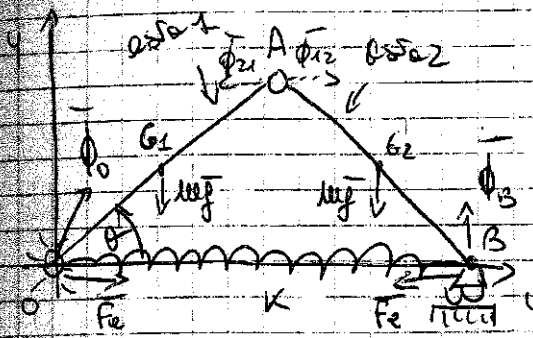 y
asta 1 Φ21 A Φ12 asta 2
G1 G2
Φ0 mg mg ΦB
θ B
O Fe K Fe